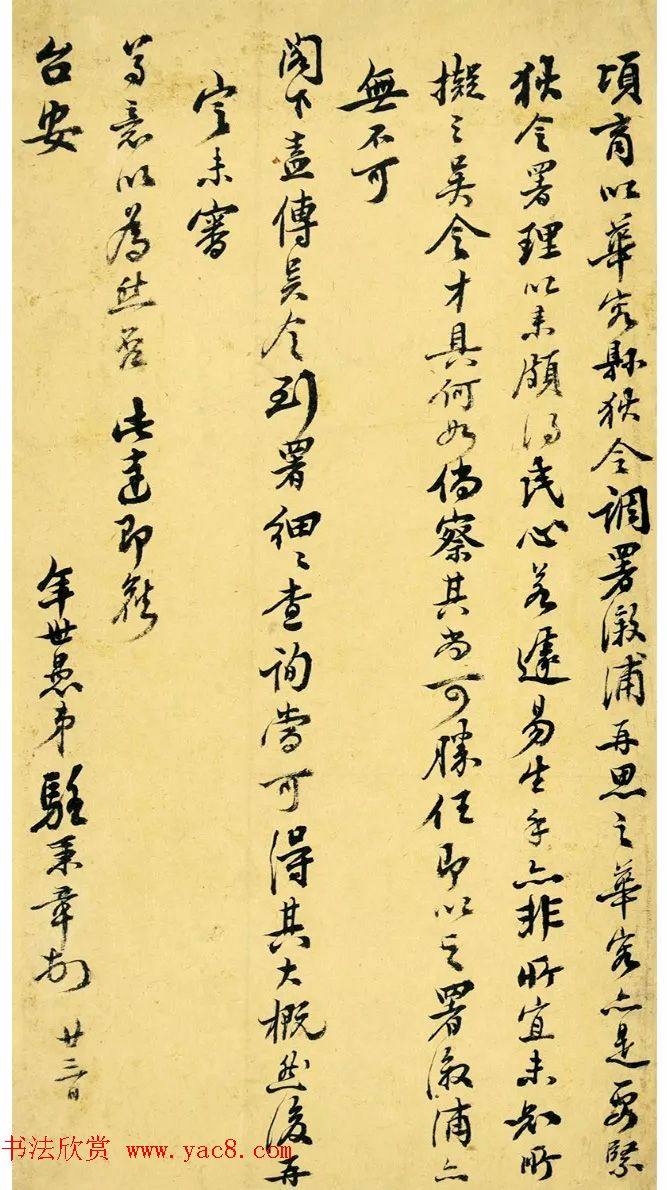 頃商以華容縣狄令調署漵浦再思之華容亦是要緊
狄令署理以来頗得民心若遽易生手亦非所宜未知所
擬之吳令才具何如倘察其尚可勝任即以之署漵浦亦
無不可
閣下盍傳吳令到署細細查詢當可得其大概然後再
定未審
尊意以為然否 此達即頌
台安
年世愚弟駱秉章頓 廿三日
书法欣赏 www.yac8.com